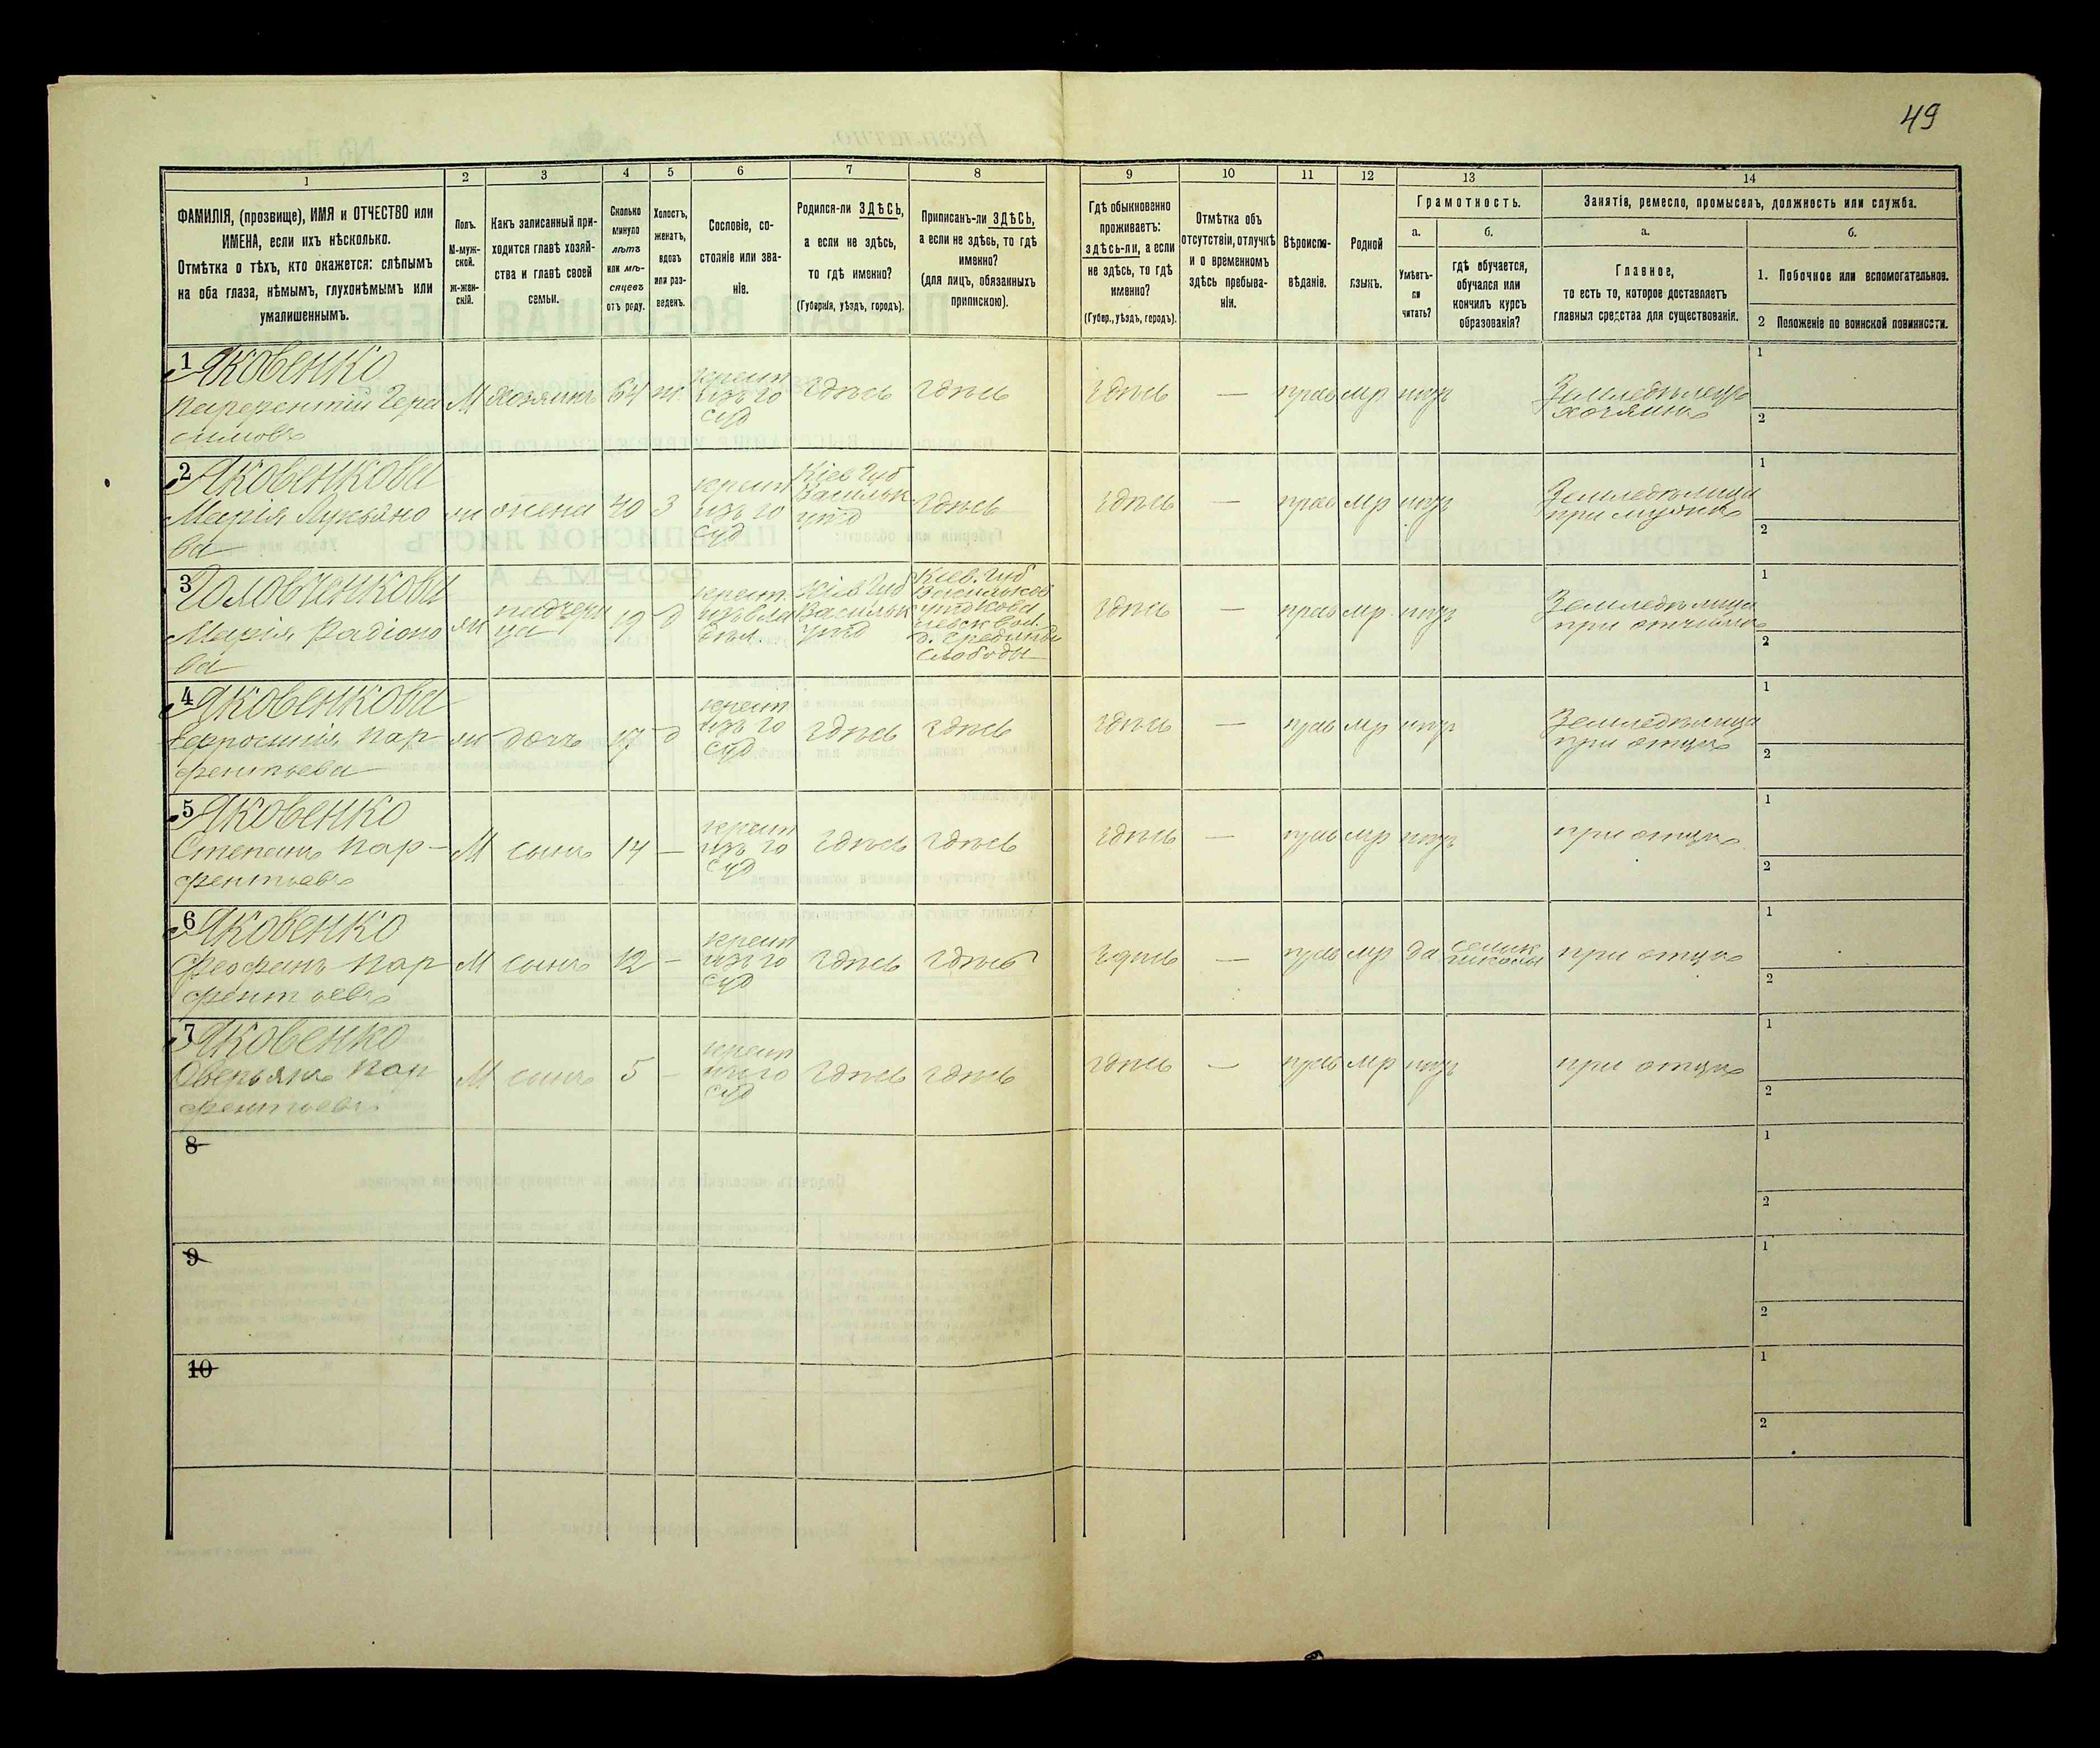 49
1
2
3
4
5
6
7
8
9
10
11
12
13
14
ФАМИЛІЯ, (прозвище), ИМЯ и ОТЧЕСТВО или
ИМЕНА, если ихъ нѣсколько.
Отмѣтка о тѣхъ, кто окажется: слѣпымъ
на оба глаза, нѣмымъ, глухонѣмымъ или
умалишеннымъ.
Полъ.
М-муж-
ской.
ж-жен-
скій.
Какъ записанный при-
ходится главѣ хозяй-
ства и главѣ своей
семьи.
Сколько
минуло
лѣтъ
или мѣ-
сяцевъ
отъ роду.
Холостъ,
женатъ,
вдовъ
или раз-
веденъ.
Сословіе, со-
стояніе или зва-
ніе.
Родился-ли ЗДѢСЬ,
а если не здѣсь,
то гдѣ именно?
(Губернія, уѣздъ, городъ).
Приписанъ-ли ЗДѢСЬ,
а если не здѣсь, то гдѣ
именно?
(для лицъ, обязанныхъ
припискою).
Гдѣ обыкновенно
проживаетъ:
здѣсь-ли, а если
не здѣсь, то гдѣ
именно?
(Губер., уѣздъ, городъ).
Отмѣтка объ
отсутствіи, отлучкѣ
и о временномъ
здѣсь пребыва-
ніи.
Вѣроиспо-
вѣданіе.
Родной
языкъ.
Грамотность.
а.
Умѣетъ-
ли
читать?
б.
гдѣ обучается,
обучался или
кончилъ курсъ
образованія?
Занятія, ремесло, промыселъ, должность или служба.
а.
Главное,
то есть то, которое доставляетъ
главныя средства для существованія.
б.
1. Побочное или вспомогательное.
2 Положеніе по воинской повинности.
1 Яковенко
Парфентій Гера
симовъ
М
хозяинъ
64
ж
крест
изъ го
суд
здѣсь
здѣсь
здѣсь
—
прав
мр
нѣтъ
Земледѣлецъ
хозяинъ
1
2
2 Яковенкова
Марія Лукьяно
ва
ж
жена
40
З
крест
изъ го
суд
Кіев Губ
Васильк
уѣзд
здѣсь
здѣсь
—
прав
мр
нѣтъ
Земледѣлица
при мужѣ
1
2
3 Головченкова
Марія Радіоно
ва
ж
падчери
ца
19
д
крест.
изъ вла
дѣл.
Кіев Губ
Васильк
уѣзд
Кіев. Губ
Васильков
Слободы
здѣсь
—
прав
мр
нѣтъ
Земледѣлица
при отчимѣ
1
2
4 Яковенкова
Ефросинія Пар
фентьева
ж
дочь
17
д
крест
изъ го
суд
здѣсь
здѣсь
здѣсь
—
прав
мр
нѣтъ
Земледѣлица
при отцѣ
1
2
5 Яковенко
Степанъ Пар-
фентьевъ
М
сынъ
14
—
крест
изъ го
суд
здѣсь
здѣсь
здѣсь
—
прав
мр
нѣтъ
при отцѣ
1
2
6 Яковенко
Феофанъ Пар
фентьевъ
М
сынъ
12
—
крест
изъ го
суд
здѣсь
здѣсь
здѣсь
—
прав
мр
да
школы
при отцѣ
1
2
7 Яковенко
Оверьянъ Пар
фентьевъ
М
сынъ
5
—
крест
изъ го
суд
здѣсь
здѣсь
здѣсь
—
прав
мр
нѣтъ
при отцѣ
1
2
8
1
2
9
1
2
10
1
2